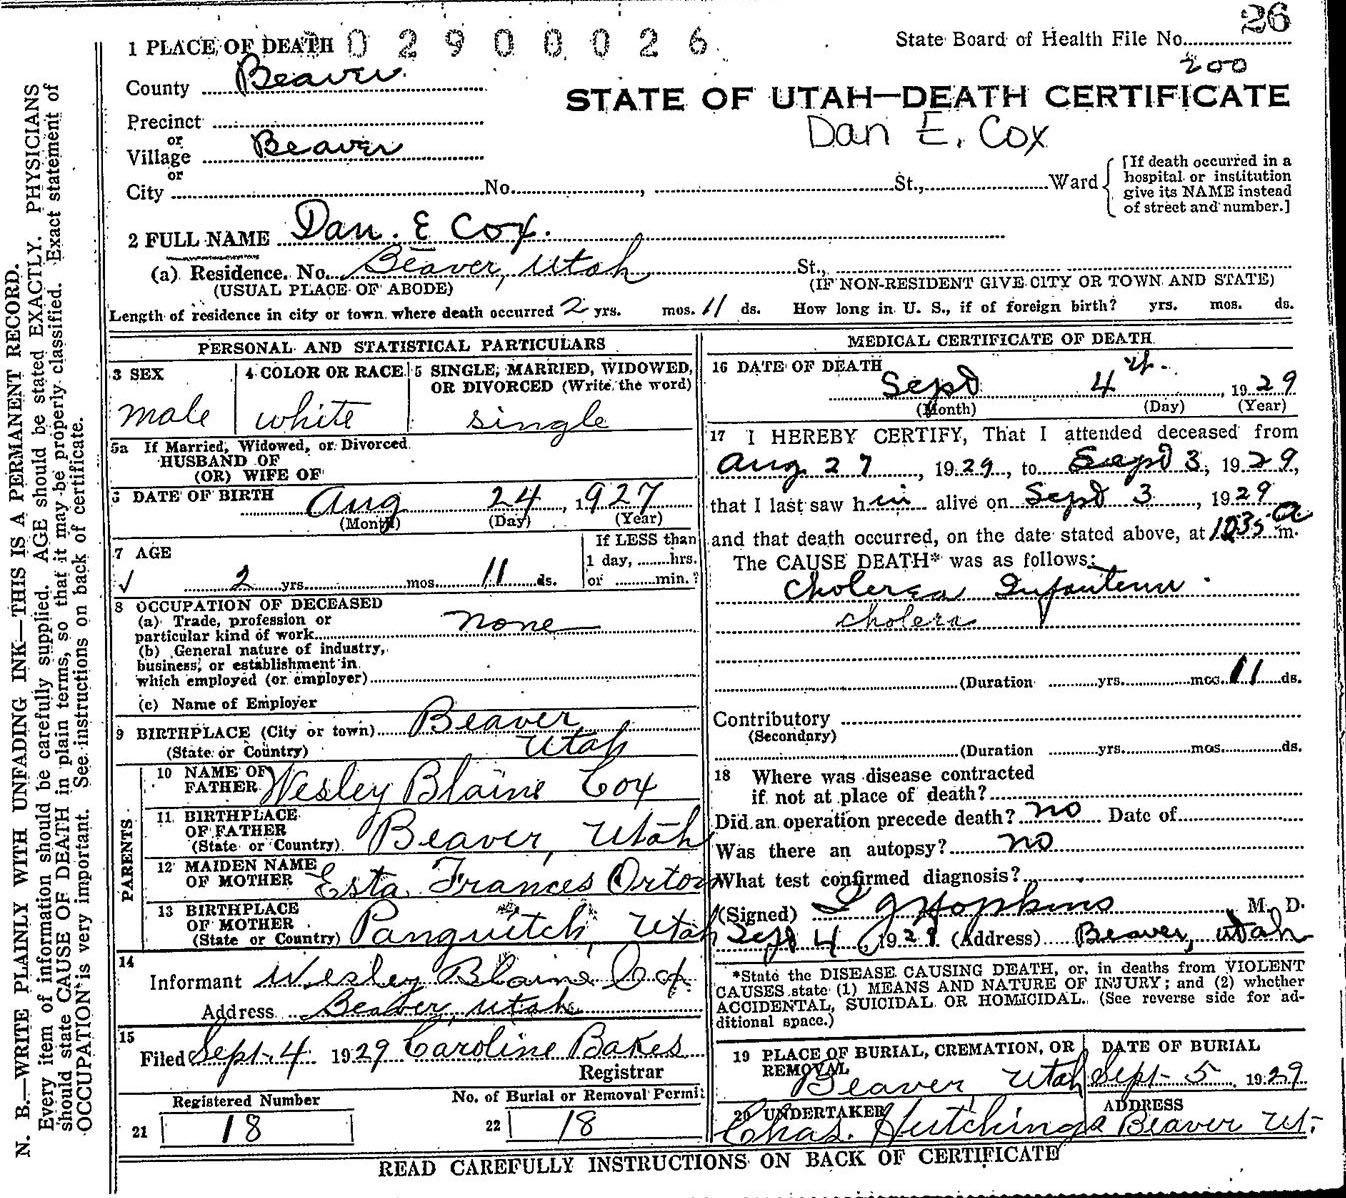 N. B.—WRITE PLAINLY WITH UNFADING INK—THIS IS A PERMANENT RECORD.
Every item of information should be carefully supplied. AGE should be stated EXACTLY. PHYSICIANS
should state CAUSE OF DEATH in plain terms, so that it may be properly classified. Exact statement of
OCCUPATION is very important. See instructions on back of certificate.
1 PLACE OF DEATH 0 2 9 0 0 0 2 6
State Board of Health File No. 26
200
County Beaver
STATE OF UTAH—DEATH CERTIFICATE
Dan E. Cox
Precinct
or
Village Beaver
or
City No. St., Ward
[If death occurred in a
hospital or institution
give its NAME instead
of street and number.]
2 FULL NAME Dan. E Cox.
(a) Residence. No. Beaver, Utah St.,
(USUAL PLACE OF ABODE) (IF NON-RESIDENT GIVE CITY OR TOWN AND STATE)
Length of residence in city or town where death occurred 2 yrs. mos. 11 ds. How long in U. S., if of foreign birth? yrs. mos. ds.
PERSONAL AND STATISTICAL PARTICULARS
3 SEX
male
4 COLOR OR RACE
white
5 SINGLE, MARRIED, WIDOWED,
OR DIVORCED (Write the word)
single
5a If Married, Widowed, or Divorced
HUSBAND OF
(OR) WIFE OF
6 DATE OF BIRTH Aug 24, 1927
(Month) (Day) (Year)
7 AGE
2 yrs. mos. 11 ds.
If LESS than
1 day, hrs.
or min.?
8 OCCUPATION OF DECEASED
(a) Trade, profession or
particular kind of work none
(b) General nature of industry,
business, or establishment in
which employed (or employer)
(c) Name of Employer
9 BIRTHPLACE (City or town) Beaver
(State or Country) Utah
PARENTS
10 NAME OF
FATHER Wesley Blaine Cox
11 BIRTHPLACE
OF FATHER
(State or Country) Beaver, Utah
12 MAIDEN NAME
OF MOTHER Esta Frances Orton
13 BIRTHPLACE
OF MOTHER
(State or Country) Panguitch, Utah
14
Informant Wesley Blaine Cox
Address Beaver, Utah
15
Filed Sept. 4 1929 Caroline Bakes
Registrar
Registered Number
21 18
No. of Burial or Removal Permit
22 18
MEDICAL CERTIFICATE OF DEATH
16 DATE OF DEATH
Sept 4th. 1929
(Month) (Day) (Year)
17 I HEREBY CERTIFY, That I attended deceased from
Aug 27, 1929, to Sept 3, 1929,
that I last saw him alive on Sept 3, 1929
and that death occurred, on the date stated above, at 1035 a m.
The CAUSE DEATH* was as follows:
Cholerea Infantum
cholera
(Duration yrs. mos. 11 ds.
Contributory
(Secondary)
(Duration yrs. mos. ds.
18 Where was disease contracted
if not at place of death?
Did an operation precede death? no Date of
Was there an autopsy? no
What test confirmed diagnosis?
(Signed) Hopkins M. D.
Sept 4, 1929 (Address) Beaver, Utah
*State the DISEASE CAUSING DEATH, or, in deaths from VIOLENT
CAUSES state (1) MEANS AND NATURE OF INJURY; and (2) whether
ACCIDENTAL, SUICIDAL OR HOMICIDAL. (See reverse side for ad-
ditional space.)
19 PLACE OF BURIAL, CREMATION, OR
REMOVAL
Beaver, Utah
DATE OF BURIAL
Sept. 5, 1929
20 UNDERTAKER
Chas. Hutchings
ADDRESS
Beaver Ut.
READ CAREFULLY INSTRUCTIONS ON BACK OF CERTIFICATE